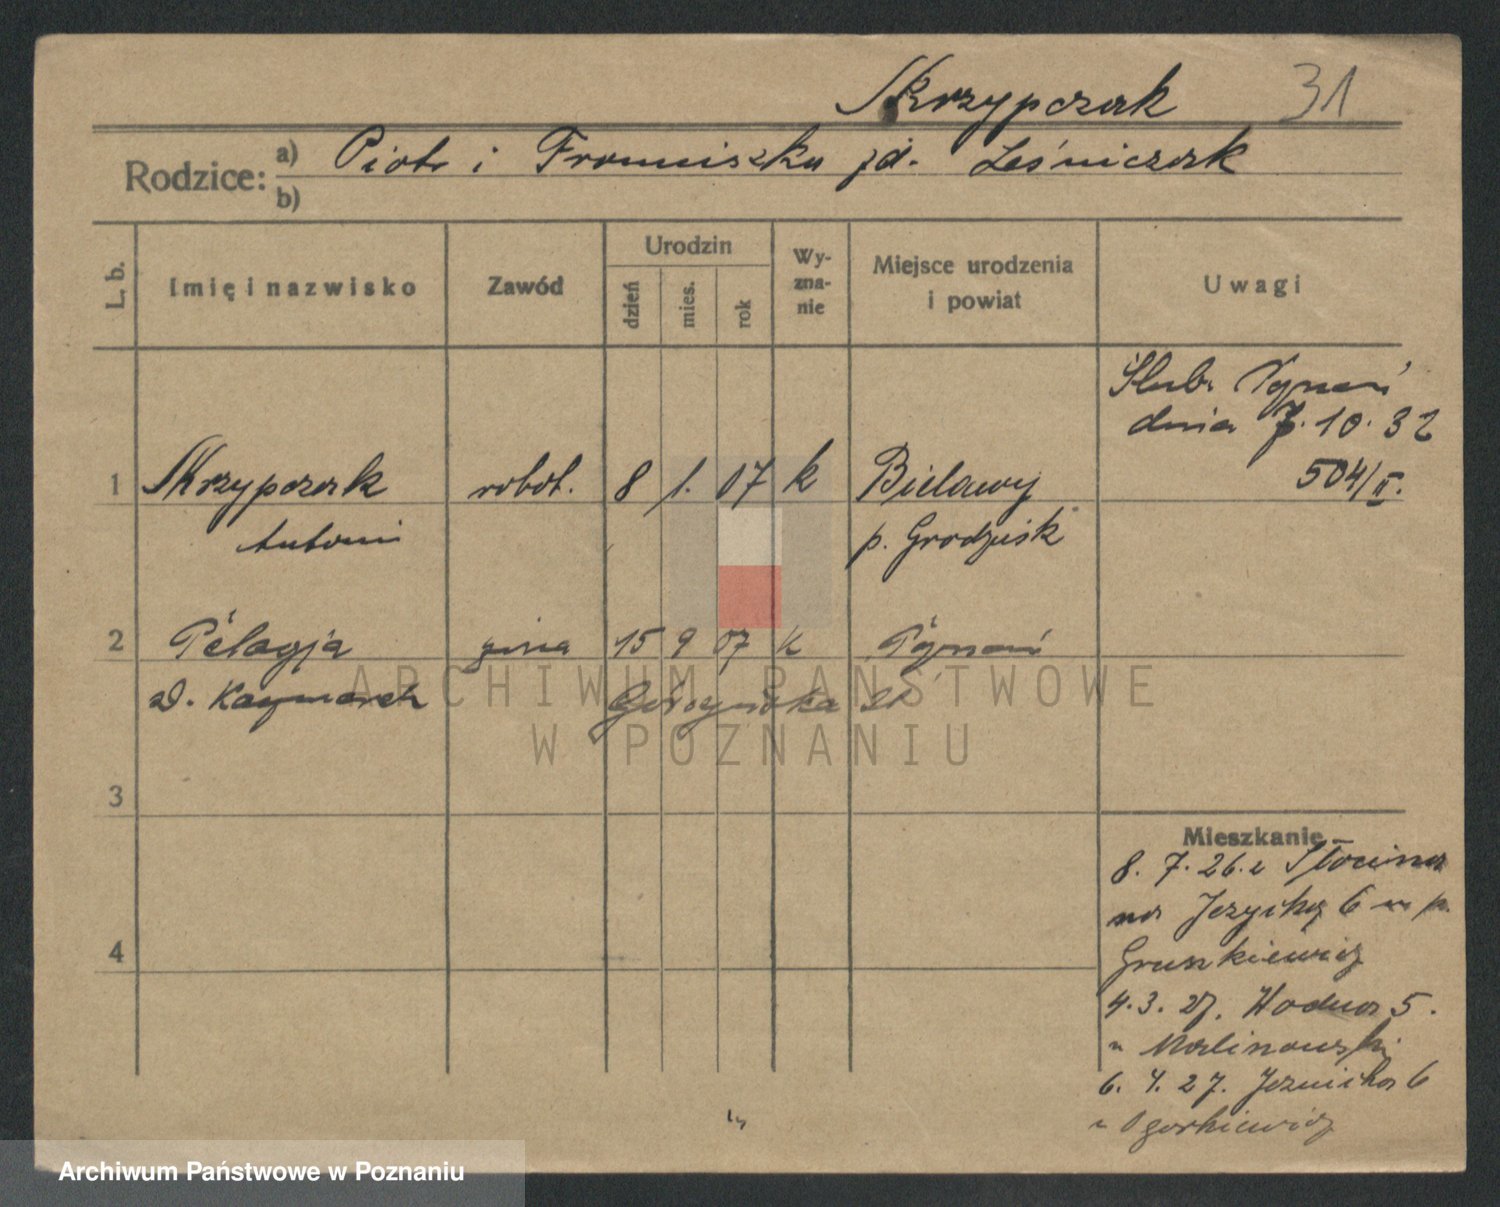 Skrzypczak 31
Rodzice: a) Piotr i Franciszka zd. Leśniczak
b)
L. b. Imię i nazwisko Zawód Urodzin dzień mies. rok Wyznanie Miejsce urodzenia i powiat Uwagi
Ślub. Poznań
dnia 7. 10. 32
504/II.
1 Skrzypczak robot. 8 1. 07 k Bielawy
Antoni p. Grodzisk
2 Pelagja 15 9 07 k Poznań
zd. Kaczmarek
ARCHIWUM PAŃSTWOWE
W POZNANIU
3
Mieszkanie
8. 7. 26. z Słocina
na 6 p.
4
4. 3. 27. Wodna 5.
u Malinowski
6. 4. 27. 6
Archiwum Państwowe w Poznaniu